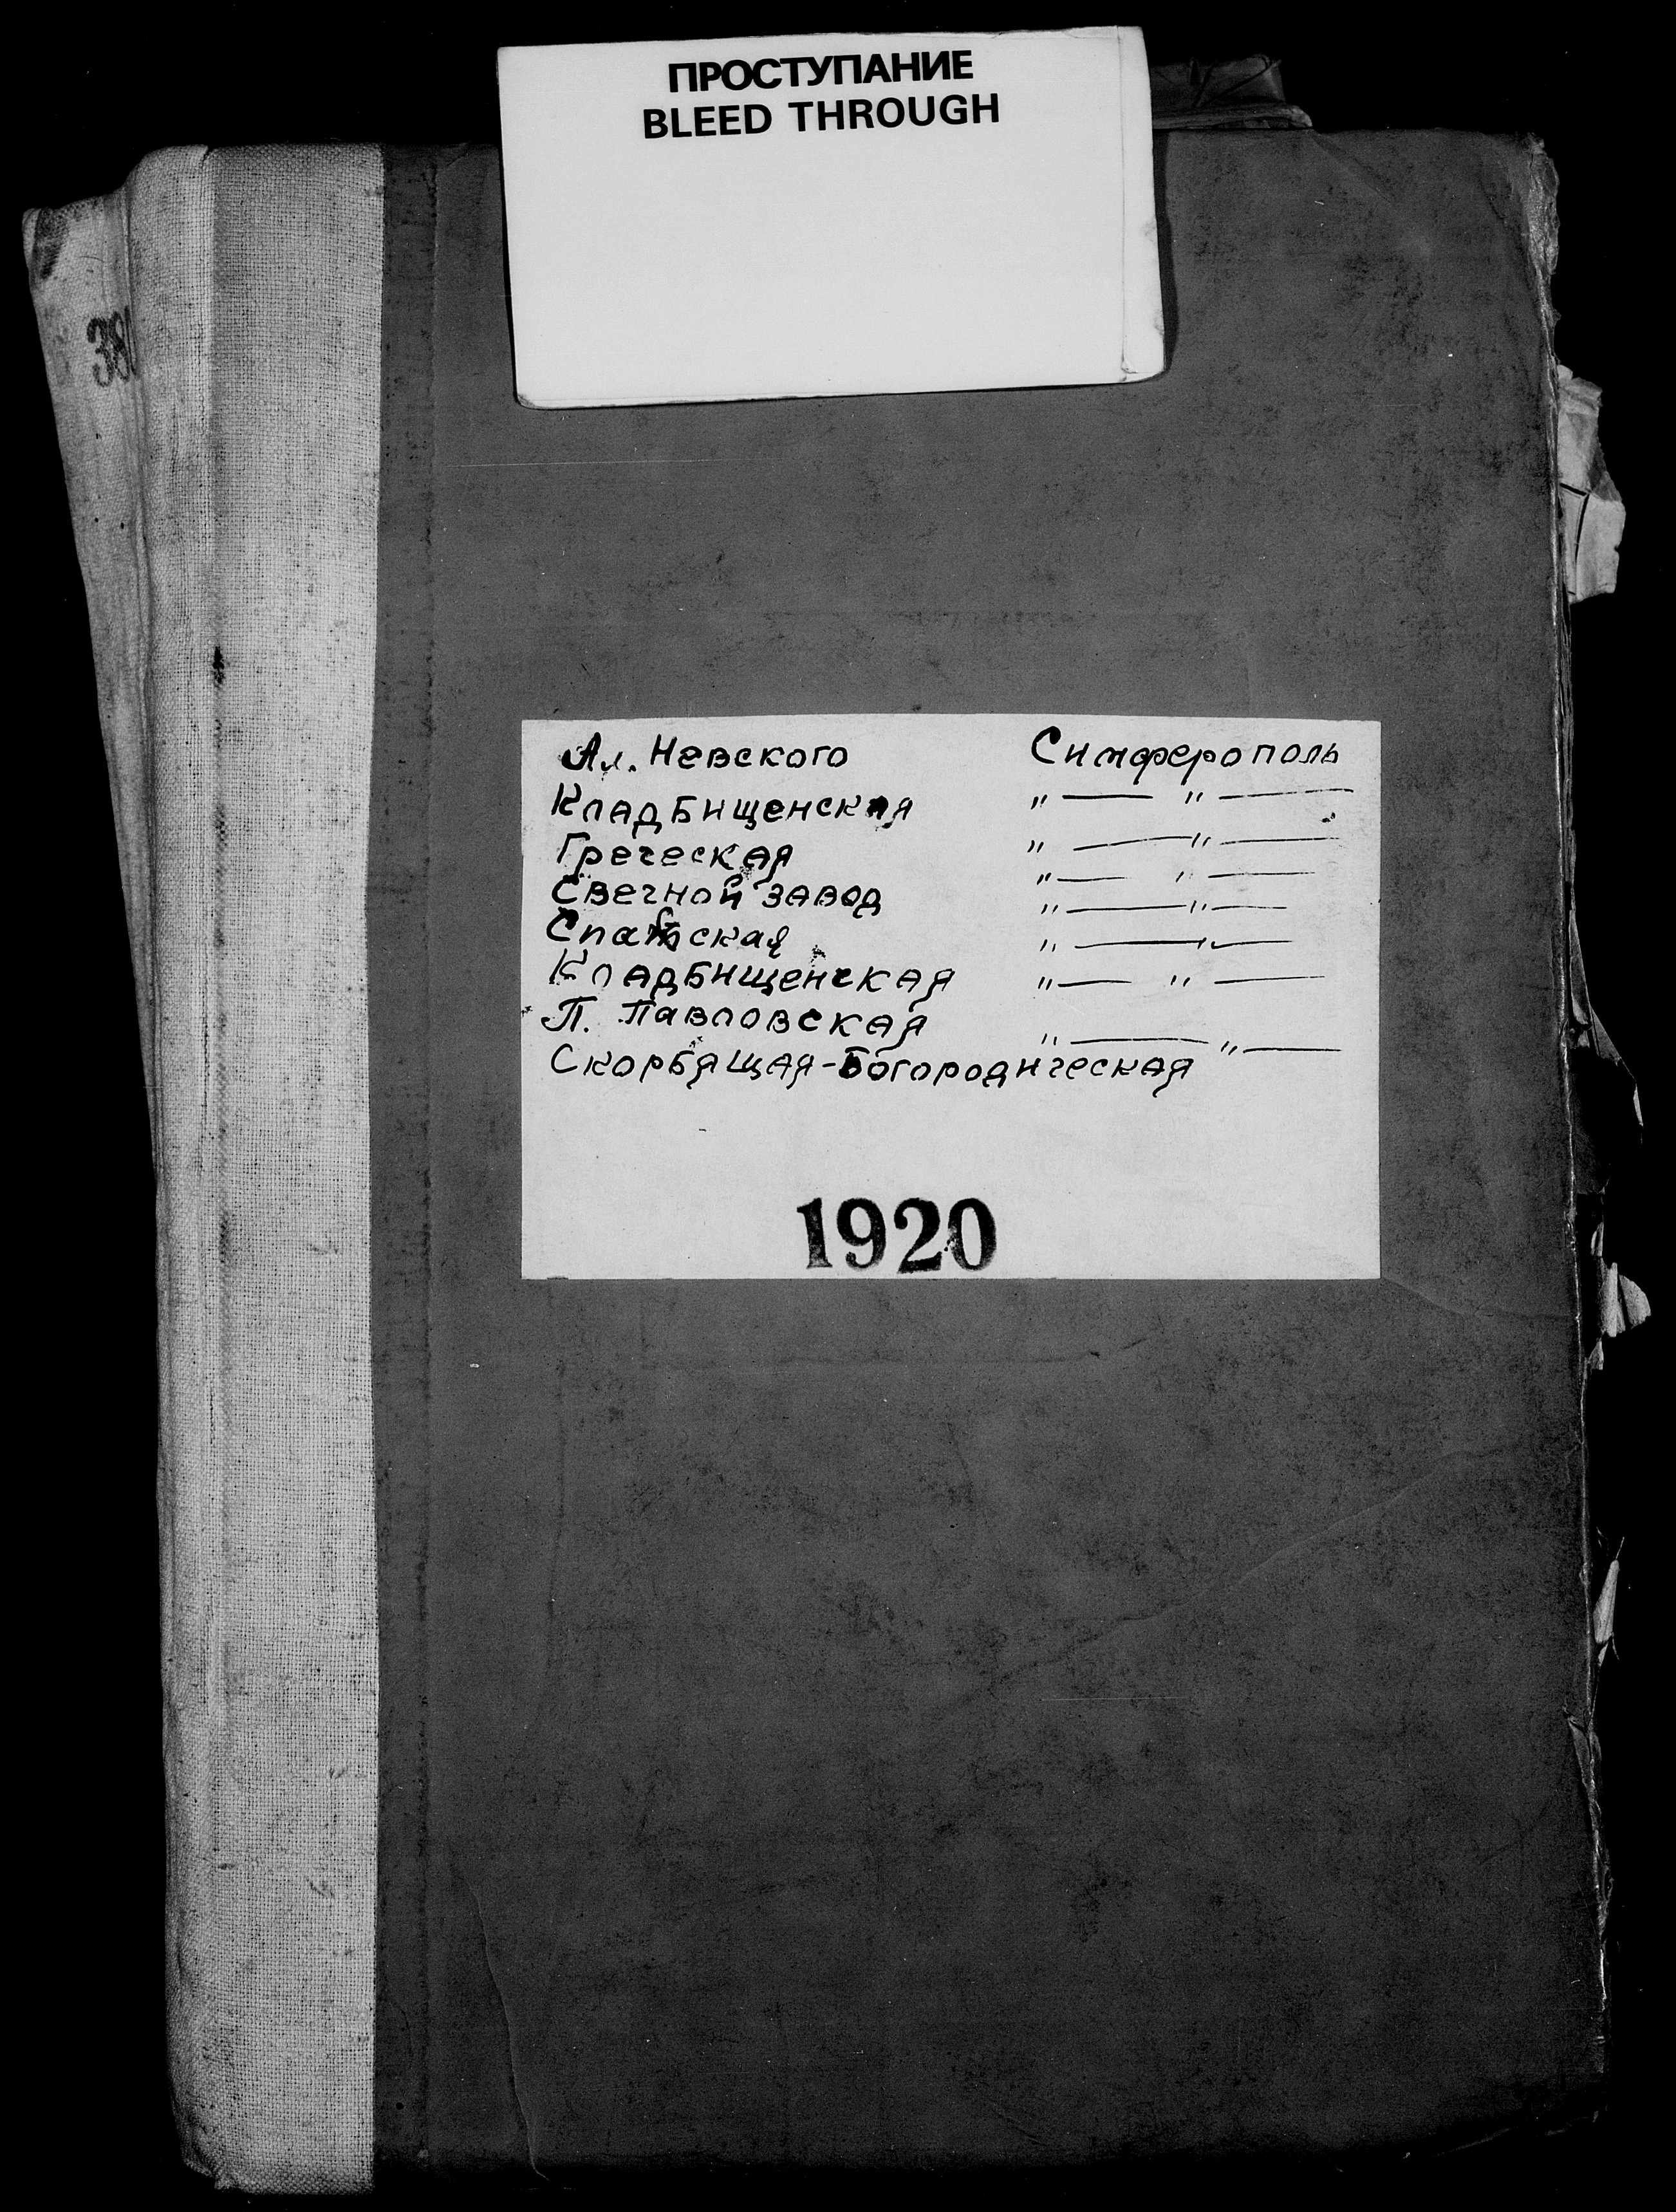 ПРОСТУПАНИЕ
BLEED THROUGH
38
Ал. Невского Симферополь
Кладбищенская " — " —
Греческая " — " —
Свечной завод " — " —
Спасская " — " —
Кладбищенская " — " —
П. Павловская " — " —
Скорбящая-Богородическая " — " —
1920